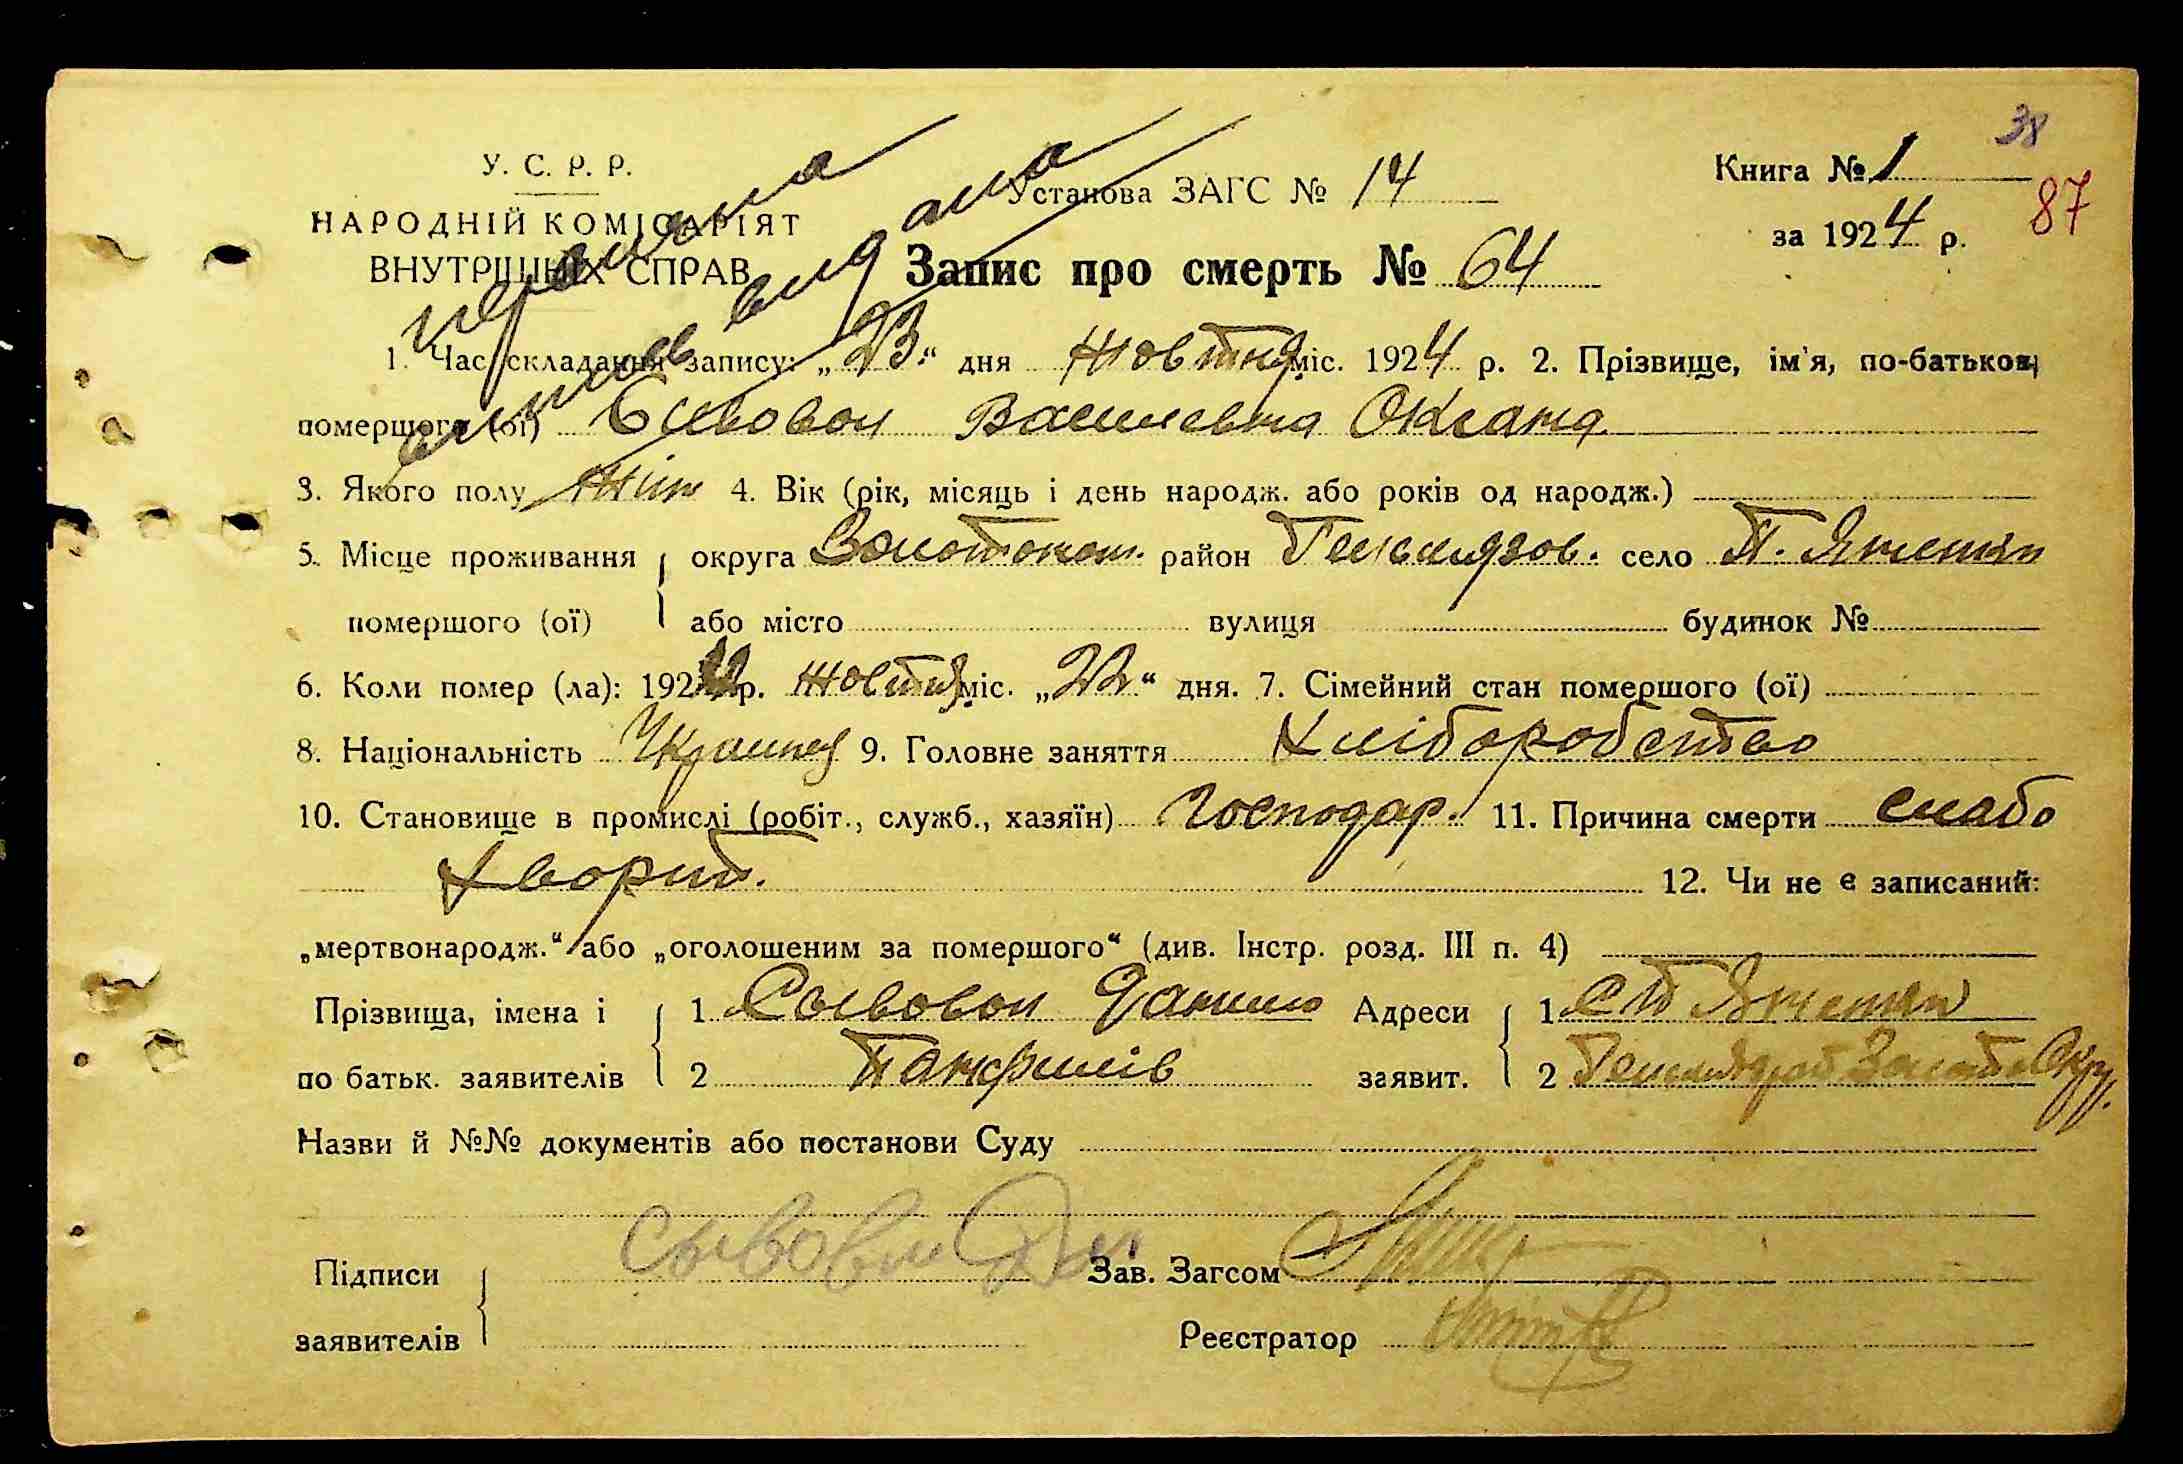 38
У. С. Р. Р.
Установа ЗАГС № 14
Книга № 1
87
НАРОДНІЙ КОМІСАРІЯТ
за 1924 р.
ВНУТРІШНІХ СПРАВ
Запис про смерть № 64
1. Час складання запису: „23“ дня Жовтня міс. 1924 р. 2. Прізвище, ім'я, по-батькові
помершого (ої) Сивовол Василевна Оксана
3. Якого полу Жін 4. Вік (рік, місяць і день народж. або років од народж.)
5. Місце проживання округа Золотонош. район Гельмязов. село П. Ячетин
помершого (ої) або місто вулиця будинок №
6. Коли помер (ла): 1924 р. Жовтня міс. „22“ дня. 7. Сімейний стан помершого (ої)
8. Національність 9. Головне заняття Хліборобство
10. Становище в промислі (робіт., служб., хазяїн) Господар. 11. Причина смерти слабо
12. Чи не є записаний:
„мертвонародж.“ або „оголошеним за помершого“ (див. Інстр. розд. III п. 4)
Прізвища, імена і 1 Сывовол Данило Адреси 1
по батьк. заявителів 2 Панфилів заявит. 2
Назви й №№ документів або постанови Суду
Підписи Сывовол Дан Зав. Загсом
заявителів Реєстратор